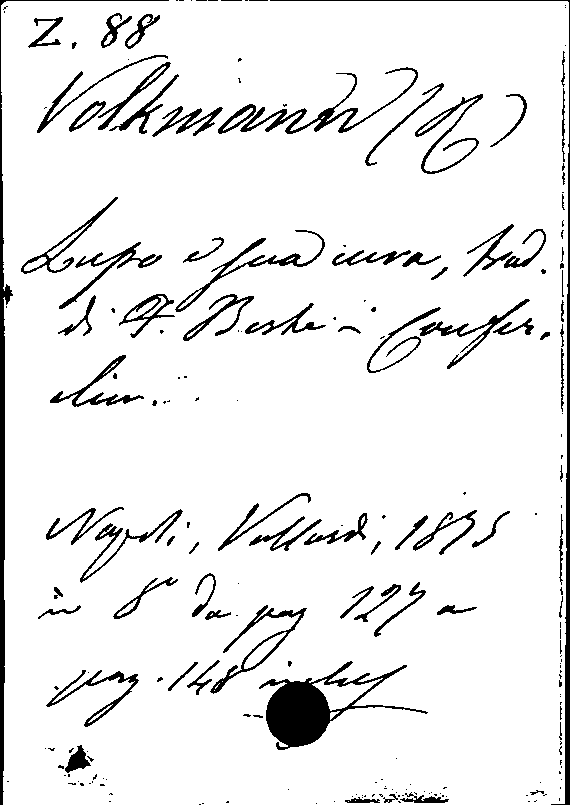 Z. 88
Volkmann (R)
Lupo e sua cura, trad.
di F. Beshe - Confer.
clin.
Napoli, Vallardi, 1875
in 8° da pag 127 a
pag. 148 inclus